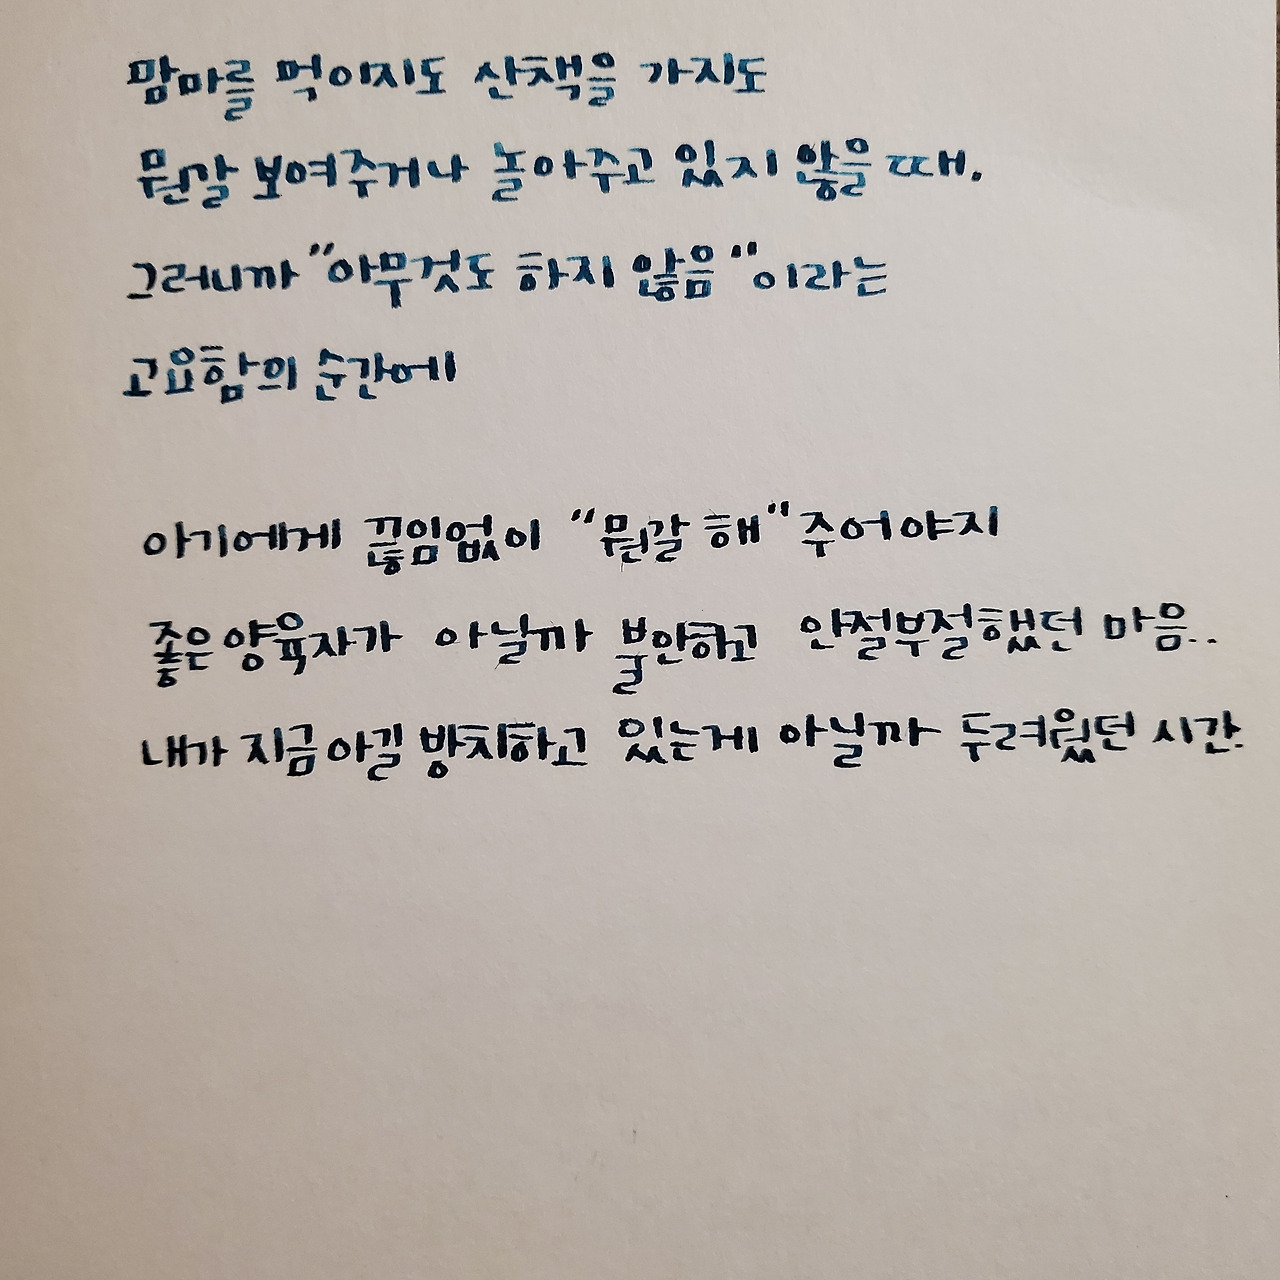 맘마를 먹이지도 산책을 가지도
뭔갈 보여주거나 놀아주고 있지 않을 때.
그러니까 "아무것도 하지 않음"이라는
고요함의 순간에
아기에게 끊임없이 "뭔갈 해"주어야지
좋은 양육자가 아닐까 불안하고 안절부절했던 마음..
내가 지금 아길 방치하고 있는게 아닐까 두려웠던 시간.